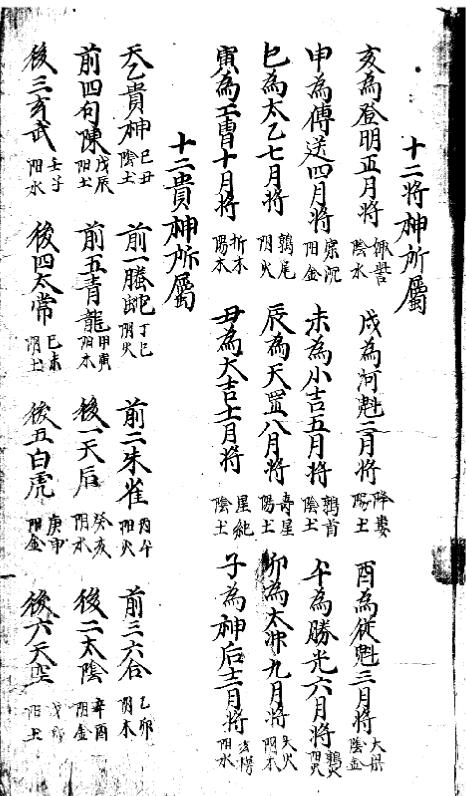 十二将神所屬
亥為登明正月将 娵訾 陰水 戌為河魁二月将 降婁 陽土 酉為從魁三月将 大梁 陰金
申為傳送四月将 寔沉 阳金 未為小吉五月将 鶉首 陰土 午為勝光六月将 鶉火 阳火
巳為太乙七月将 鶉尾 阴火 辰為天罡八月将 壽星 陽土 卯為太冲九月将 大火 阴木
寅為工曹十月将 折木 陽木 丑為大吉十一月将 星紀 陰土 子為神后十二月将 阳水
十二貴神所屬
天乙貴神 己丑 陰土 前一螣蛇 丁巳 阴火 前二朱雀 丙午 阳火 前三六合 乙卯 阴木
前四勾陳 戊辰 阳土 前五青龍 甲寅 阳木 後一天后 癸亥 阴水 後二太陰 辛酉 阴金
後三玄武 壬子 阳水 後四太常 己未 阴土 後五白虎 庚申 阳金 後六天空 阳土